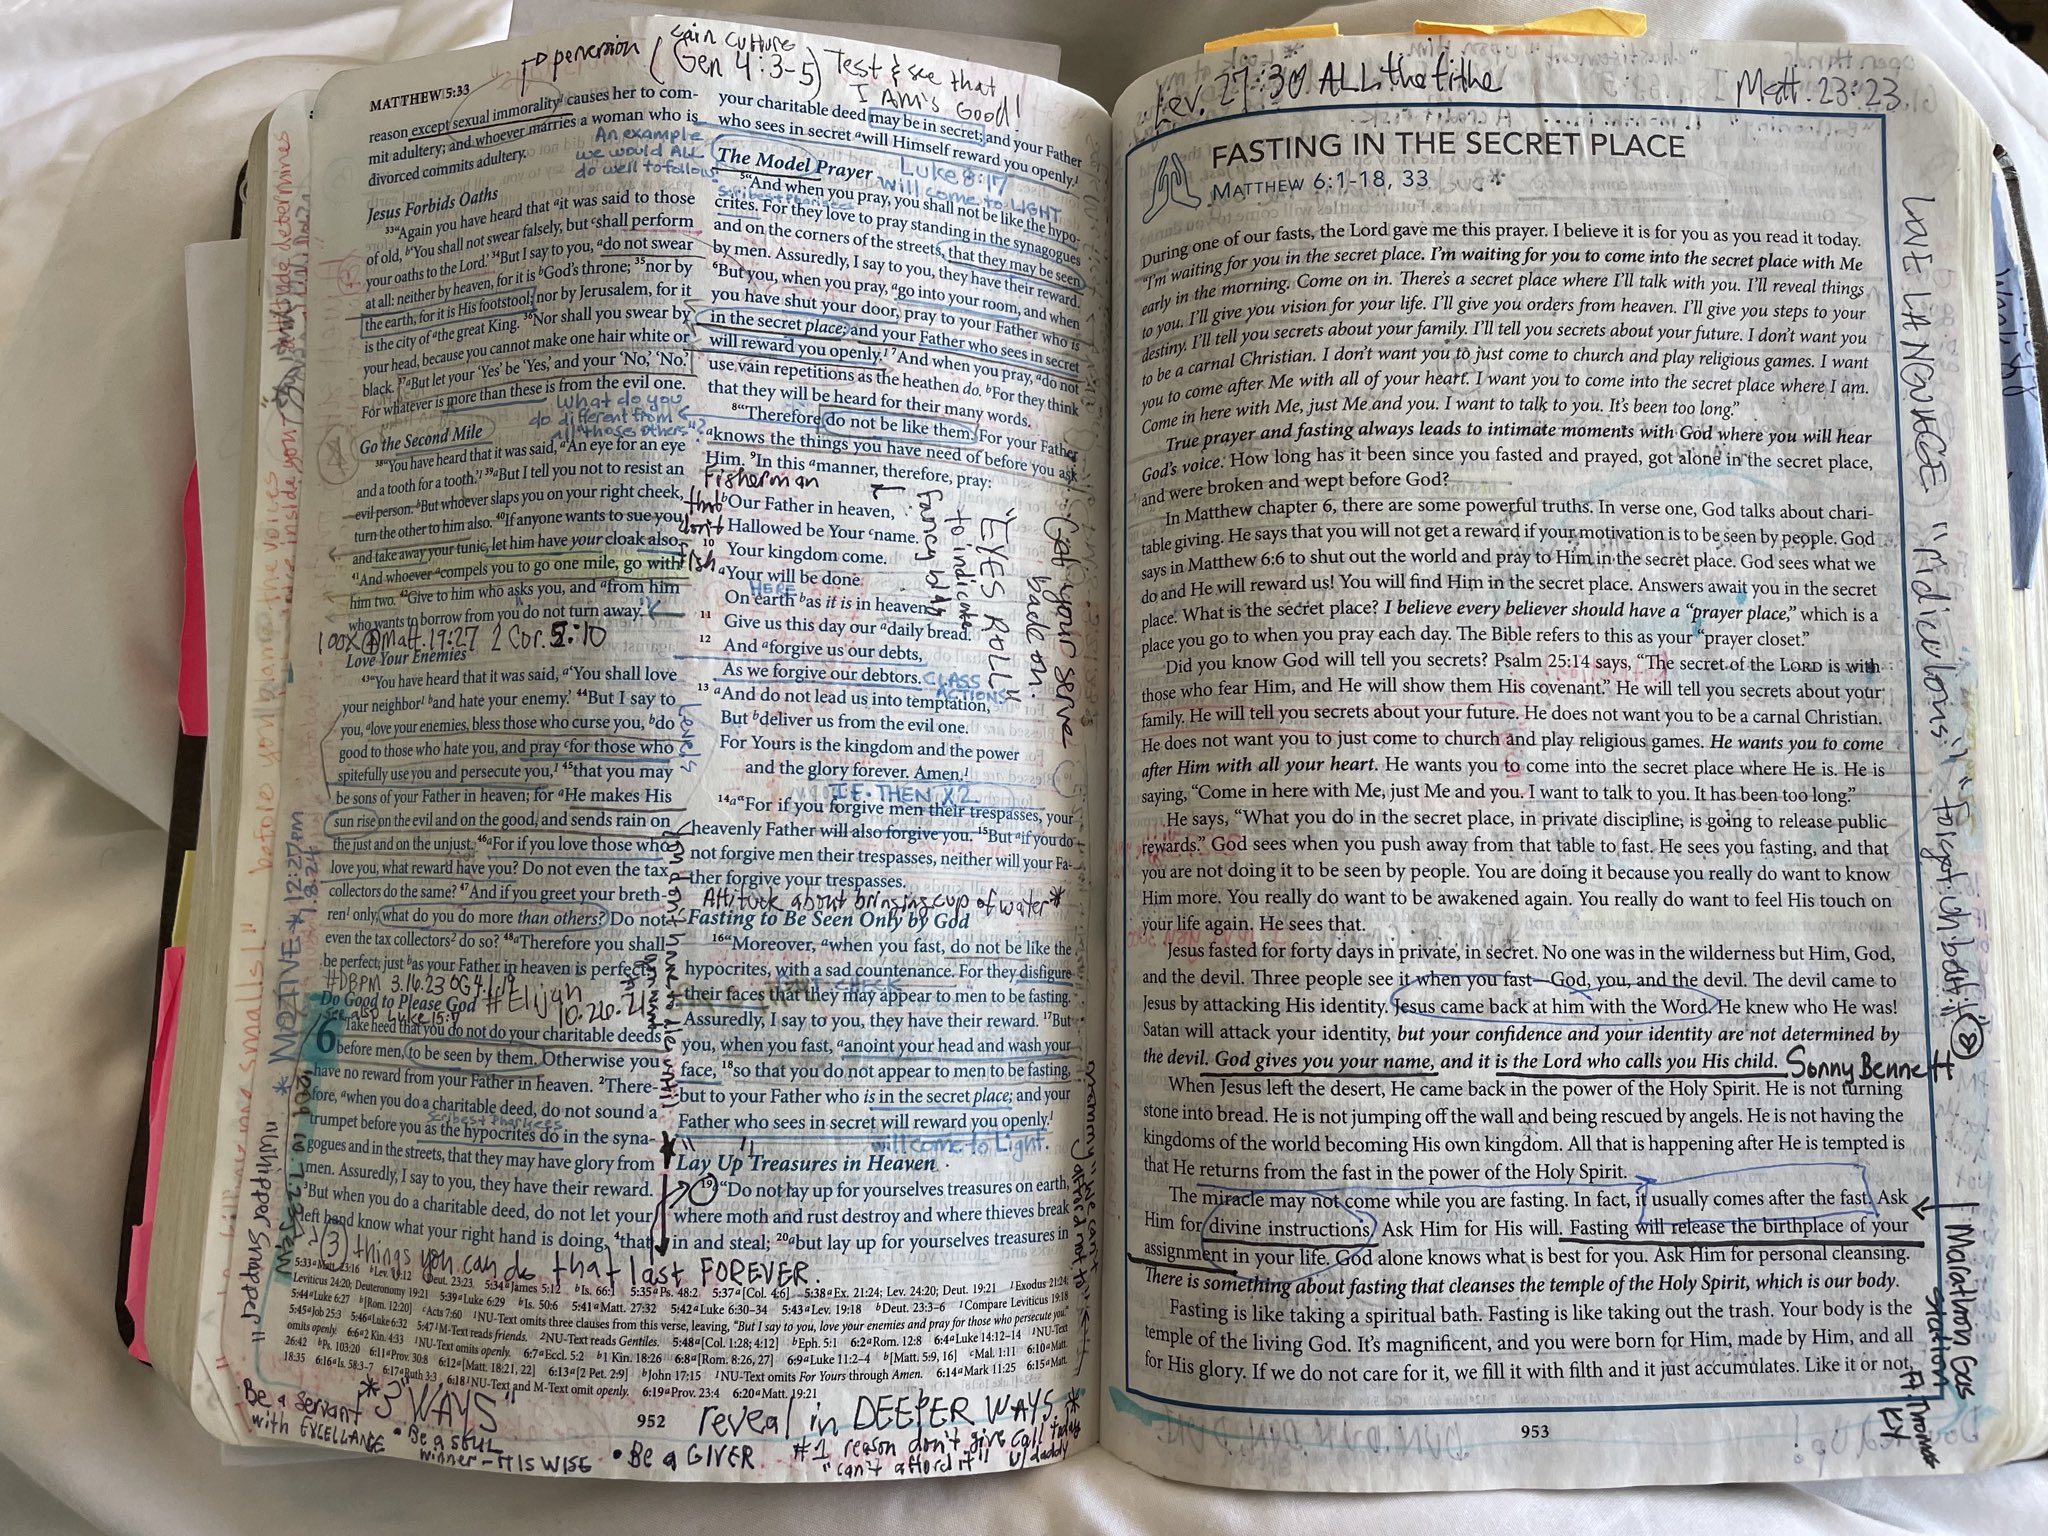 perversion (
cain culture
Gen 4:3-5) Test & see that
I AM's Good!
MATTHEW 5:33
reason except sexual immorality¹ causes her to com-
mit adultery; and whoever marries a woman who is
divorced commits adultery.
An example
we would ALL
do well to follow
Jesus Forbids Oaths
³³“Again you have heard that ᵃit was said to those
of old, ᵇ‘You shall not swear falsely, but ᶜshall perform
your oaths to the Lord.’ ³⁴But I say to you, ᵃdo not swear
at all: neither by heaven, for it is ᵇGod’s throne; ³⁵nor by
the earth, for it is His footstool; nor by Jerusalem, for it
is the city of ᵃthe great King. ³⁶Nor shall you swear by
your head, because you cannot make one hair white or
black. ³⁷ᵃBut let your ‘Yes’ be ‘Yes,’ and your ‘No,’ ‘No.’
For whatever is more than these is from the evil one.
What do you
do different from
all "those others"?
Go the Second Mile
³⁸“You have heard that it was said, ᵃ‘An eye for an eye
and a tooth for a tooth.’¹ ³⁹ᵃBut I tell you not to resist an
evil person. ᵇBut whoever slaps you on your right cheek,
turn the other to him also. ⁴⁰If anyone wants to sue you
and take away your tunic, let him have your cloak also.
⁴¹And whoever ᵃcompels you to go one mile, go with
him two. ⁴²Give to him who asks you, and ᵃfrom him
who wants to borrow from you do not turn away.
100x Matt. 19:27 2 Cor. 5:10
Love Your Enemies
⁴³“You have heard that it was said, ᵃ‘You shall love
your neighbor¹ ᵇand hate your enemy.’ ⁴⁴But I say to
you, ᵃlove your enemies, bless those who curse you, ᵇdo
good to those who hate you, and pray ᶜfor those who
spitefully use you and persecute you,¹ ⁴⁵that you may
be sons of your Father in heaven; for ᵃHe makes His
sun rise on the evil and on the good, and sends rain on
the just and on the unjust. ⁴⁶ᵃFor if you love those who
love you, what reward have you? Do not even the tax
collectors do the same? ⁴⁷And if you greet your breth-
ren¹ only, what do you do more than others? Do not
even the tax collectors² do so? ⁴⁸ᵃTherefore you shall
be perfect, just ᵇas your Father in heaven is perfect.
#DBPM 3.16.23
#Elijah
10.26.21
Do Good to Please God
see also Luke 15:7
6 “Take heed that you do not do your charitable deeds
before men, to be seen by them. Otherwise you
have no reward from your Father in heaven. ²There-
fore, ᵃwhen you do a charitable deed, do not sound a
trumpet before you as the hypocrites do in the syna-
gogues and in the streets, that they may have glory from
men. Assuredly, I say to you, they have their reward.
³But when you do a charitable deed, do not let your
left hand know what your right hand is doing, ⁴that
3 things you can do that last FOREVER.
your charitable deed may be in secret; and your Father
who sees in secret ᵃwill Himself reward you openly.¹
The Model Prayer
Luke 8:17
will come to LIGHT
⁵“And when you pray, you shall not be like the hypo-
crites. For they love to pray standing in the synagogues
and on the corners of the streets, that they may be seen
by men. Assuredly, I say to you, they have their reward.
⁶But you, when you pray, ᵃgo into your room, and when
you have shut your door, pray to your Father who is
in the secret place; and your Father who sees in secret
will reward you openly.¹ ⁷And when you pray, ᵃdo not
use vain repetitions as the heathen do. ᵇFor they think
that they will be heard for their many words.
⁸“Therefore do not be like them. For your Father
ᵃknows the things you have need of before you ask
Him. ⁹In this ᵃmanner, therefore, pray:
Fisherman
that
don't
fish
ᵇOur Father in heaven,
Hallowed be Your ᶜname.
¹⁰ Your kingdom come.
ᵃYour will be done
HERE
On earth ᵇas it is in heaven.
¹¹ Give us this day our ᵃdaily bread.
¹² And ᵃforgive us our debts,
As we forgive our debtors.
CLASS
ACTIONS
¹³ ᵃAnd do not lead us into temptation,
But ᵇdeliver us from the evil one.
For Yours is the kingdom and the power
and the glory forever. Amen.¹
Fancy blah
to indicate
"EYES ROLL"
Get your serve
bade on.
Levels
IF THEN X2
¹⁴ᵃ“For if you forgive men their trespasses, your
heavenly Father will also forgive you. ¹⁵But ᵃif you do
not forgive men their trespasses, neither will your Fa-
ther forgive your trespasses.
Attitude about bringing cup of water*
Fasting to Be Seen Only by God
¹⁶“Moreover, ᵃwhen you fast, do not be like the
hypocrites, with a sad countenance. For they disfigure
their faces that they may appear to men to be fasting.
Assuredly, I say to you, they have their reward. ¹⁷But
you, when you fast, ᵃanoint your head and wash your
face, ¹⁸so that you do not appear to men to be fasting,
but to your Father who is in the secret place; and your
Father who sees in secret will reward you openly.¹
will come to Light.
Lay Up Treasures in Heaven
¹⁹“Do not lay up for yourselves treasures on earth,
where moth and rust destroy and where thieves break
in and steal; ²⁰ᵃbut lay up for yourselves treasures in
* MOTIVE * 12:27pm
1.8.24
"Mihipper Snapper"
5:33 ᵃMatt. 23:16 ᵇLev. 19:12 ᶜDeut. 23:23 5:34 ᵃJames 5:12 ᵇIs. 66:1 5:35 ᵃPs. 48:2 5:37 ᵃ[Col. 4:6] 5:38 ᵃEx. 21:24; Lev. 24:20; Deut. 19:21 ¹Exodus 21:24;
Leviticus 24:20; Deuteronomy 19:21 5:39 ᵃLuke 6:29 ᵇIs. 50:6 5:41 ᵃMatt. 27:32 5:42 ᵃLuke 6:30–34 5:43 ᵃLev. 19:18 ᵇDeut. 23:3–6 ¹Compare Leviticus 19:18
5:44 ᵃLuke 6:27 ᵇ[Rom. 12:20] ᶜActs 7:60 ¹NU-Text omits three clauses from this verse, leaving, “But I say to you, love your enemies and pray for those who persecute you.”
5:45 ᵃJob 25:3 5:46 ᵃLuke 6:32 5:47 ¹M-Text reads friends. ²NU-Text reads Gentiles. 5:48 ᵃ[Col. 1:28; 4:12] ᵇEph. 5:1 6:2 ᵃRom. 12:8 6:4 ᵃLuke 14:12–14 ¹NU-Text
omits openly. 6:6 ᵃ2 Kin. 4:33 ¹NU-Text omits openly. 6:7 ᵃEccl. 5:2 ᵇ1 Kin. 18:26 6:8 ᵃ[Rom. 8:26, 27] 6:9 ᵃLuke 11:2–4 ᵇ[Matt. 5:9, 16] ᶜMal. 1:11 6:10 ᵃMatt.
26:42 ᵇPs. 103:20 6:11 ᵃProv. 30:8 6:12 ᵃ[Matt. 18:21, 22] 6:13 ᵃ[2 Pet. 2:9] ᵇJohn 17:15 ¹NU-Text omits For Yours through Amen. 6:14 ᵃMark 11:25 6:15 ᵃMatt.
18:35 6:16 ᵃIs. 58:3–7 6:17 ᵃRuth 3:3 6:18 ¹NU-Text and M-Text omit openly. 6:19 ᵃProv. 23:4 6:20 ᵃMatt. 19:21
*"3 WAYS"
952
reveal in DEEPER WAYS.*
Be a servant
with EXCELLANCE
• Be a SOUL
winner - HIS WISE
• Be a GIVER
#1 reason don't give
"can't afford it"
call today
w/ daddy
Lev. 27:30 ALL the tithe
Matt. 23:23
FASTING IN THE SECRET PLACE
MATTHEW 6:1-18, 33
During one of our fasts, the Lord gave me this prayer. I believe it is for you as you read it today.
“I’m waiting for you in the secret place. I’m waiting for you to come into the secret place with Me
early in the morning. Come on in. There’s a secret place where I’ll talk with you. I’ll reveal things
to you. I’ll give you vision for your life. I’ll give you orders from heaven. I’ll give you steps to your
destiny. I’ll tell you secrets about your family. I’ll tell you secrets about your future. I don’t want you
to be a carnal Christian. I don’t want you to just come to church and play religious games. I want
you to come after Me with all of your heart. I want you to come into the secret place where I am.
Come in here with Me, just Me and you. I want to talk to you. It’s been too long.”
True prayer and fasting always leads to intimate moments with God where you will hear
God’s voice. How long has it been since you fasted and prayed, got alone in the secret place,
and were broken and wept before God?
In Matthew chapter 6, there are some powerful truths. In verse one, God talks about chari-
table giving. He says that you will not get a reward if your motivation is to be seen by people. God
says in Matthew 6:6 to shut out the world and pray to Him in the secret place. God sees what we
do and He will reward us! You will find Him in the secret place. Answers await you in the secret
place. What is the secret place? I believe every believer should have a “prayer place,” which is a
place you go to when you pray each day. The Bible refers to this as your “prayer closet.”
Did you know God will tell you secrets? Psalm 25:14 says, “The secret of the LORD is with
those who fear Him, and He will show them His covenant.” He will tell you secrets about your
family. He will tell you secrets about your future. He does not want you to be a carnal Christian.
He does not want you to just come to church and play religious games. He wants you to come
after Him with all your heart. He wants you to come into the secret place where He is. He is
saying, “Come in here with Me, just Me and you. I want to talk to you. It has been too long.”
He says, “What you do in the secret place, in private discipline, is going to release public
rewards.” God sees when you push away from that table to fast. He sees you fasting, and that
you are not doing it to be seen by people. You are doing it because you really do want to know
Him more. You really do want to be awakened again. You really do want to feel His touch on
your life again. He sees that.
Jesus fasted for forty days in private, in secret. No one was in the wilderness but Him, God,
and the devil. Three people see it when you fast—God, you, and the devil. The devil came to
Jesus by attacking His identity. Jesus came back at him with the Word. He knew who He was!
Satan will attack your identity, but your confidence and your identity are not determined by
the devil. God gives you your name, and it is the Lord who calls you His child.
Sonny Bennett
When Jesus left the desert, He came back in the power of the Holy Spirit. He is not turning
stone into bread. He is not jumping off the wall and being rescued by angels. He is not having the
kingdoms of the world becoming His own kingdom. All that is happening after He is tempted is
that He returns from the fast in the power of the Holy Spirit.
The miracle may not come while you are fasting. In fact, it usually comes after the fast. Ask
Him for divine instructions. Ask Him for His will. Fasting will release the birthplace of your
assignment in your life. God alone knows what is best for you. Ask Him for personal cleansing.
There is something about fasting that cleanses the temple of the Holy Spirit, which is our body.
Fasting is like taking a spiritual bath. Fasting is like taking out the trash. Your body is the
temple of the living God. It’s magnificent, and you were born for Him, made by Him, and all
for His glory. If we do not care for it, we fill it with filth and it just accumulates. Like it or not,
Marathon Gas
station
953